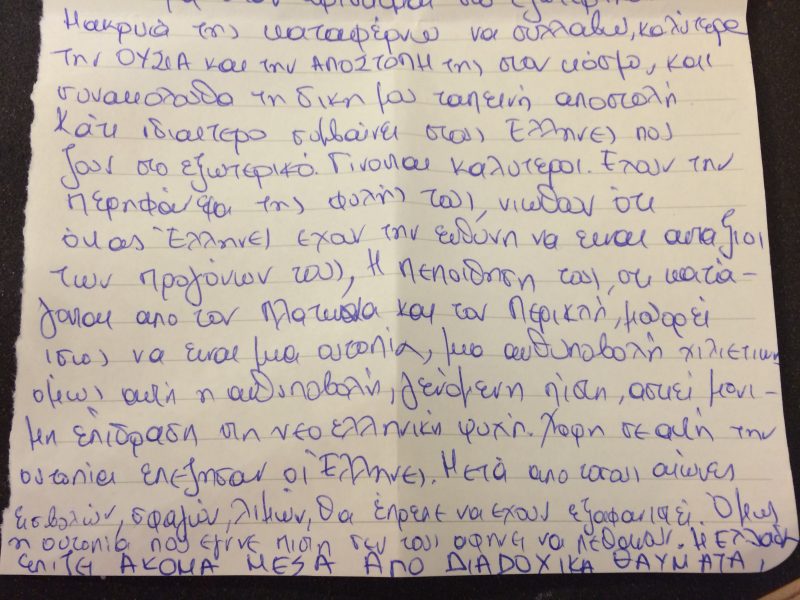 στο εξωτερικό
Μακρυά της καταφέρνω να συλλάβω, καλύτερα
την ΟΥΣΙΑ και την ΑΠΟΣΤΟΛΗ της στον κόσμο, και
συνακόλουθα τη δικη μου ταπεινή αποστολή
Κάτι ιδιαιτερο συμβαίνει στους Έλληνες που
ζουν στο εξωτερικό. Γίνονται καλυτεροι. Εχουν την
περηφάνεια της φυλής τους, νιωθουν ότι
όντας Έλληνες εχουν την ευθύνη να ειναι ανταξιοι
των προγόνων τους, Η πεποίθηση τους, οτι κατά-
γονται απο τον Πλατωνα και τον Περικλή, μπορεί
ισως να ειναι μια ουτοπία, μια αυθυποβολή χιλιετιων
όμως αυτή η αυθυποβολή, γενόμενη πίστη, ασκεί μόνι-
μη επίδραση στη νεοελληνική ψυχή. Χαρη σε αυτή την
ουτοπια επεζησαν οι Έλληνες. Μετά απο τοσους αιώνες
εισβολών, σφαγών, λιμών, θα έπρεπε να εχουν εξαφανιστεί. Όμως
η ουτοπια που εγινε πιστη δεν τους αφηνει να πεθανουν. Η Ελλαδα
ΑΚΟΜΑ ΜΕΣΑ ΑΠΟ ΔΙΑΔΟΧΙΚΑ ΘΑΥΜΑΤΑ,